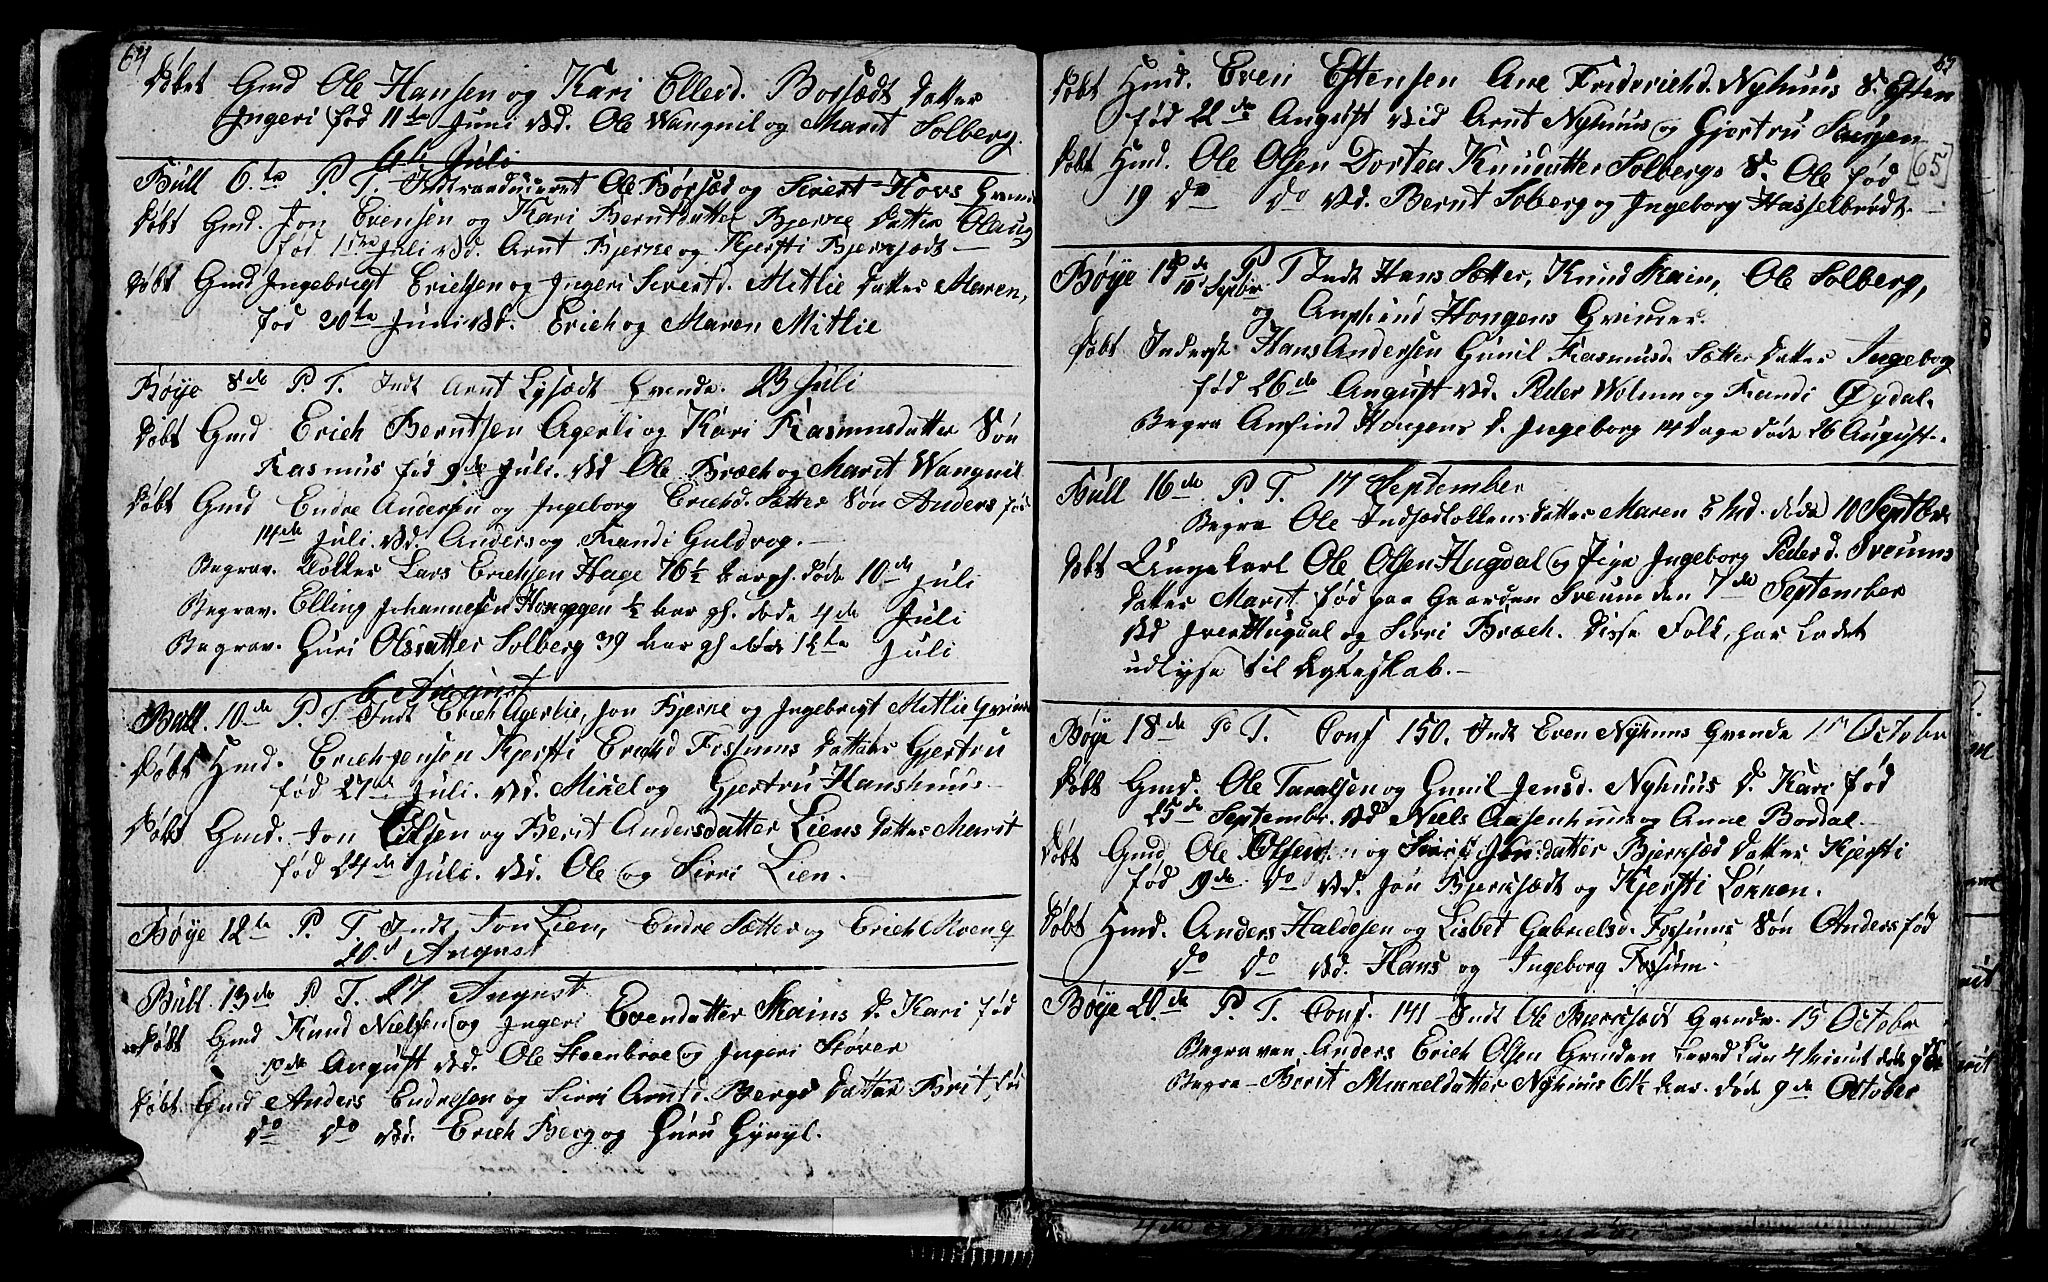 64
Døbt Gmd Ole Hansen og Kari Ellevd. Borsædt Datter
Ingeri fød 11te Juni Vd. Ole Wangnil og Marit Solberg.
6te Juli
Bull 6.te P. T. Introduceret Ole Børsæd og Sivert Hovs Qvinde
Døbt Gmd. Jon Evensen og Kari Berntsdatter Bjerne Datter Olaug
fød 1ste Juli Vd. Arnt Bjerne og Kjersti Bjerksædt
Døbt Gmd Ingebrigt Erichsen og Ingeri Sivertd. Mitlie Datter Maren,
fød 20te Juni Vd. Erich og Maren Mitlie
Bøye 8de P. T. Indt Arnt Lysædt Qvinde. 23 Juli
Døbt Gmd Erich Berntsen Agerli og Kari Rasmusdatter Søn
Rasmus fød 9de Juli. Vd Ole Bræch og Marit Wangnil
Døbt Gmd Endre Andersen og Ingeborg Erichd. Sætter Søn Anders fød
14de Juli. Vd. Anders og Randi Guldvog.
Begrav. Klokker Lars Erichsen Hage 76½ Aar gl. døde 10de Juli
Begrav. Elling Johannesen Honggen ½ Aar gl. døde 4de Juli
Begrav. Guri Olsdatter Solberg 39 Aar gl døde 12te Juli
6 August
Bull. 10de P. T. Indt Erich Agerlie, Jon Bjerne og Ingebrigt Mitlie Qvinder
Døbt Hmd. Erich Jensen Kjersti Erichd Fossums Datter Gjertru
fød 27de Juli. Vd. Mikel og Gjertru Hanshuus
Døbt Gmd. Jon Olsen og Berit Andersdatter Liens Datter Marit
fød 24de Juli. Vd. Ole og Sirri Lien.
Bøye 12te P. T Indt Jon Lien, Endre Sætter og Erich Kveng
20de August
Bull 13de P T. 27 August
Døbt Gmd Knud Nielsen og Ingeri Evendatter Skains D. Kari fød
10de August Vd. Ole Steenbroe og Ingeri Støver
Døbt Gmd Anders Endresen og Sirri Arntd. Bergs Datter Brit, fød
Do Do Vd. Erich Berg og Guru Gynyl.
65
Døbt Hmd. Even Estensen Ane Friderichd. Nyhuus S. Esten
fød 22de August Vid Arnt Nyhuus og Gjertru Saugen
Døbt Hmd. Ole Olsen Dorten Knudatter Solbergs S. Ole fød
[65]
19 Do Do Vd. Bernt Solberg og Ingeborg Hasselbrødt
Bøye 15de P T Indt Hans Sætter, Knud Skain, Ole Solberg,
10 Septbr
og Anphind Hongens Qvinder.
Døbt Inderst Hans Andersen Gunil Rasmusd. Sætter Datter Ingeborg
fød 26de August Vd. Peder Wolum og Randi Øydal.
Begra Anfind Hongens D. Ingeborg 14 Dage døde 26 August.
Bull 16de P. T. 17 September
Begra Ole Datter Maren 5 Md. døde 10 Septbr
Døbt Ungekarl Ole Olsen Hugdal og Pige Ingeborg Pederd. Sveums
Datter Marit fød paa Gaarden Sveum den 7de September
Vd Iver Hugdal og Sirri Bræch. Disse Folk, har ladet
udlyse til Ægteskab.
Bøye 18de P T. Conf 150. Indt Even Nyhuus Qvinde 1ste October
Døbt Gmd. Ole Taralsen og Gunil Jensd. Nyhuus D. Kari fød
25de Septembr. Vd Niels Aasenhuus og Anne Bordal
Døbt Gmd Ole Olsen og Sirri Jonsdatter Bjerksæd Datter Kjersti
fød 9de Do Vd. Jon Bjerksædt og Kjersti Løkken.
Døbt Hmd. Anders Haldosen og Lisbet Gabrielsd. Fossums Søn Anders fød
Do Do Vd. Hans og Ingeborg Fossum.
Bøye 20de P T. Conf. 141 Indt Ole Burksædt Qvinde. 15 October
Begraven Anders Erich Olsen Grinden Leved kun 4 Minut døde 9de
Begra Berit Mikkeldatter Nyhuus 61½ Aar. døde 9de October